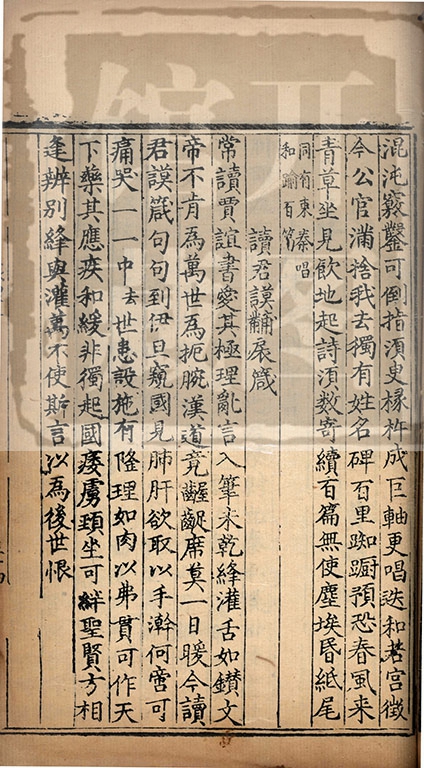 混沌竅鑿可倒指須臾椽杵成巨軸更唱迭和若宮徵
今公官滿捨我去獨有姓名碑百里踟躕預恐春風来
青草坐見飲地起詩須數寄續百篇無使塵埃昏紙尾
同有東秦唱
和踰百篇
讀君謨黼扆箴
常讀賈誼書愛其極理亂言入筆未乾絳灌舌如鑚文
帝不肯為萬世為扼腕漢道竟齷齪席莫一日暖今讀
君謨箴句句到伊旦窺國見肺肝欲取以手澣何啻可
痛哭一一中去世患設施有隆理如肉以弗貫可作天
下藥其應疾和緩非獨起國痿虜頸坐可絆聖賢方相
逢辨別絳與灌萬不使斯言以為後世恨